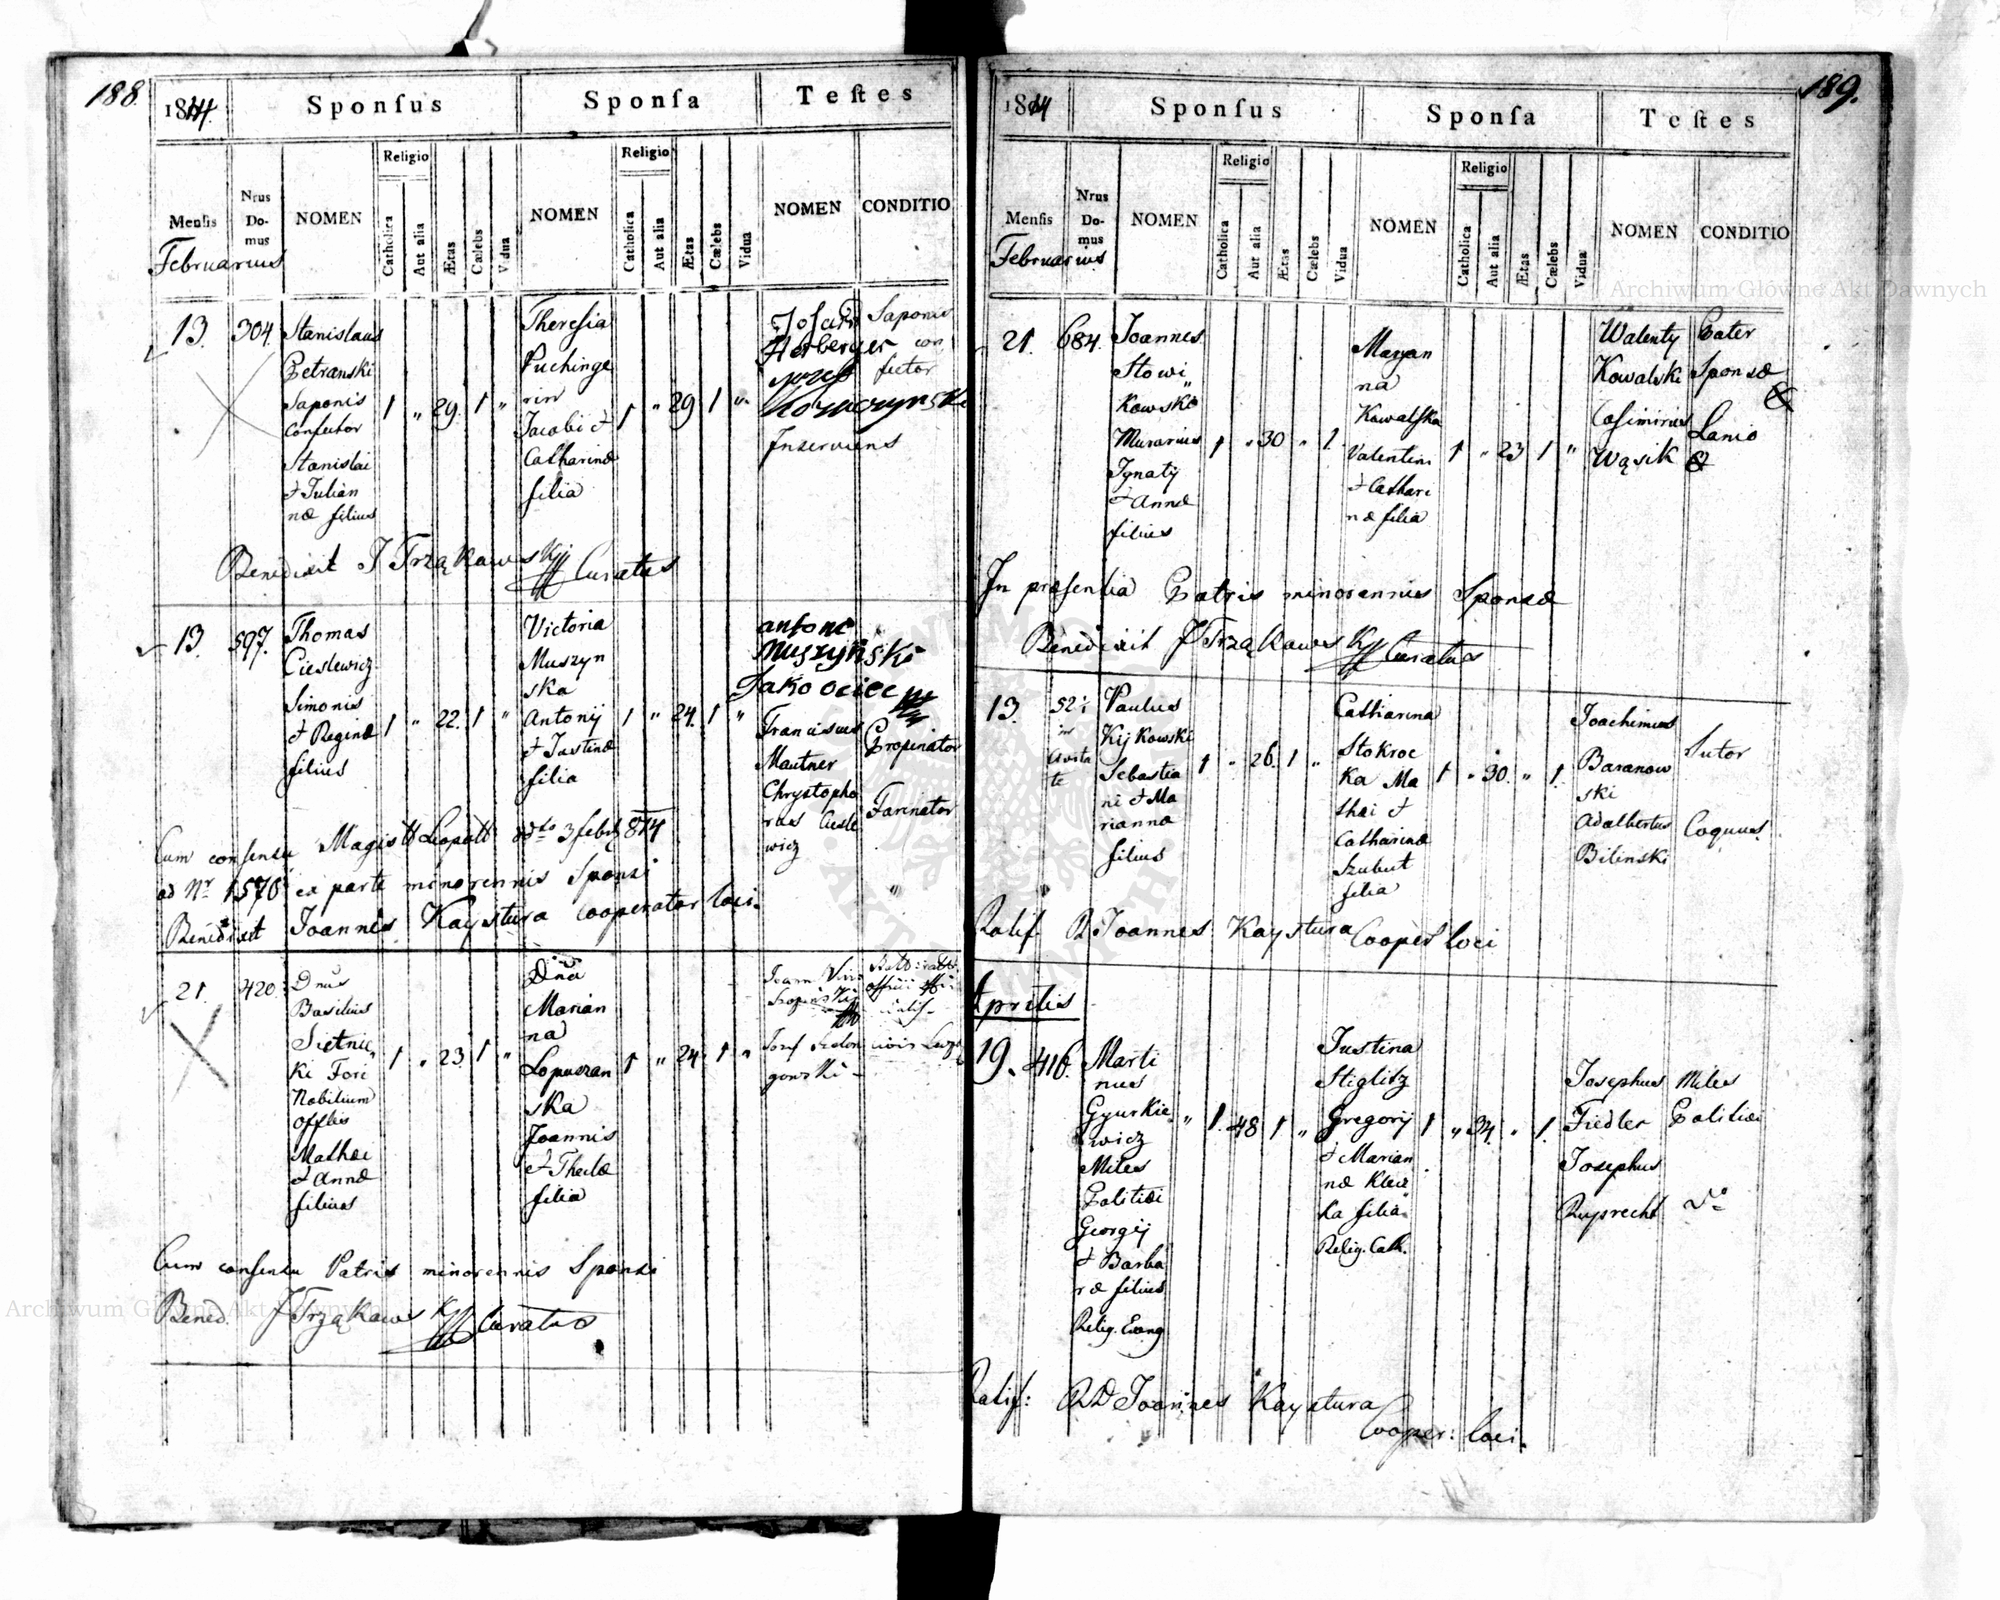 188.
1814.
Sponſus
Sponſa
Teſtes
Menſis
Nrus Do-mus
NOMEN
Religio
Catholica
Aut alia
Ætas
Cælebs
Vidua
NOMEN
Religio
Catholica
Aut alia
Ætas
Cælebs
Vidua
NOMEN
CONDITIO
Februarius
13. 304.
Stanislaus
Petranski
Saponis
Confector
Stanislai
& Julian
næ filius
1 " 29. 1 "
Theresia
Puchinge
rin
Jacobi &
Catharinæ
filia
1 " 29 1 "
Herberger
Inserviens
Saponis
con
fector
Benedixit J Trząkowskij Curatus
13. 597.
Thomas
Cieslewicz
Simonis
& Reginæ
filius
1 " 22. 1 "
Victoria
Muszyn
ska
Antonij
& Justinæ
filia
1 " 24. 1 "
antoni
Muszyński
Jako ociec
Franciscus
Mautner
Chrystopho
rus Ciesle
wicz
Propinator
Farinator
Cum consensu Magistt Leopoltt ddto 3 febr 814
ad Nr 1576 ex parte minorennis Sponsi
Benedixit Joannes Kaystura cooperator loci.
21. 420.
Dnus
Basilius
Sietnic
ki Fori
Nobilium
Offlis
Mathæi
& Annæ
filius
1 " 23 1 "
Dna
Marian
na
Lopuszan
ska
Joannis
& Theclæ
filia
1 " 24. 1 "
Cum consensu Patris minorennis Sponsi
Bened. J Trząkowskij Curatus
189.
1814
Sponſus
Sponſa
Teſtes
Menſis
Nrus Do-mus
NOMEN
Religio
Catholica
Aut alia
Ætas
Cælebs
Vidua
NOMEN
Religio
Catholica
Aut alia
Ætas
Cælebs
Vidua
NOMEN
CONDITIO
Februarius
Archiwum Główne Akt Dawnych
21. 684.
Joannes
Stowi
kowski
Murarius
Ignatij
& Annæ
filius
1 " 30 " 1.
Maryan
na
Kowalska
Valentini
& Cathari
næ filia
1 " 23 1 "
Walenty
Kowalski
Casimirus
Wąsik
Pater
Sponsæ
Lanio
In præsentia Patris minorennis Sponsæ
Benedixit J Trząkowskij Curatus
13.
Paulus
Kijkowski
Sebastia
ni & Ma
riannæ
filius
1 " 26. 1 "
Catharina
Stokroc
ka Ma
thæi &
Catharinæ
Szubert
filia
1 " 30. " 1.
Joachimus
Baranow
ski
Adalbertus
Bilinski
Sutor
Coquus.
Ratif. R Joannes Kaystura Cooper loci
Aprilis
19. 416.
Marti
nus
Gyurkie
wicz
Miles
Politiæ
Georgij
& Barba
ræ filius
Relig. Evang
" 1. 48 1 "
Justina
Stiglitz
Gregorij
& Marian
filia
Relig. Cath.
1 " 34. " 1.
Josephus
Fiedler
Josephus
Ruprecht
Miles
Politiæ
Do
Ratif: RD Joannes Kaystura
Cooper: loci.
Archiwum Główne Akt Dawnych